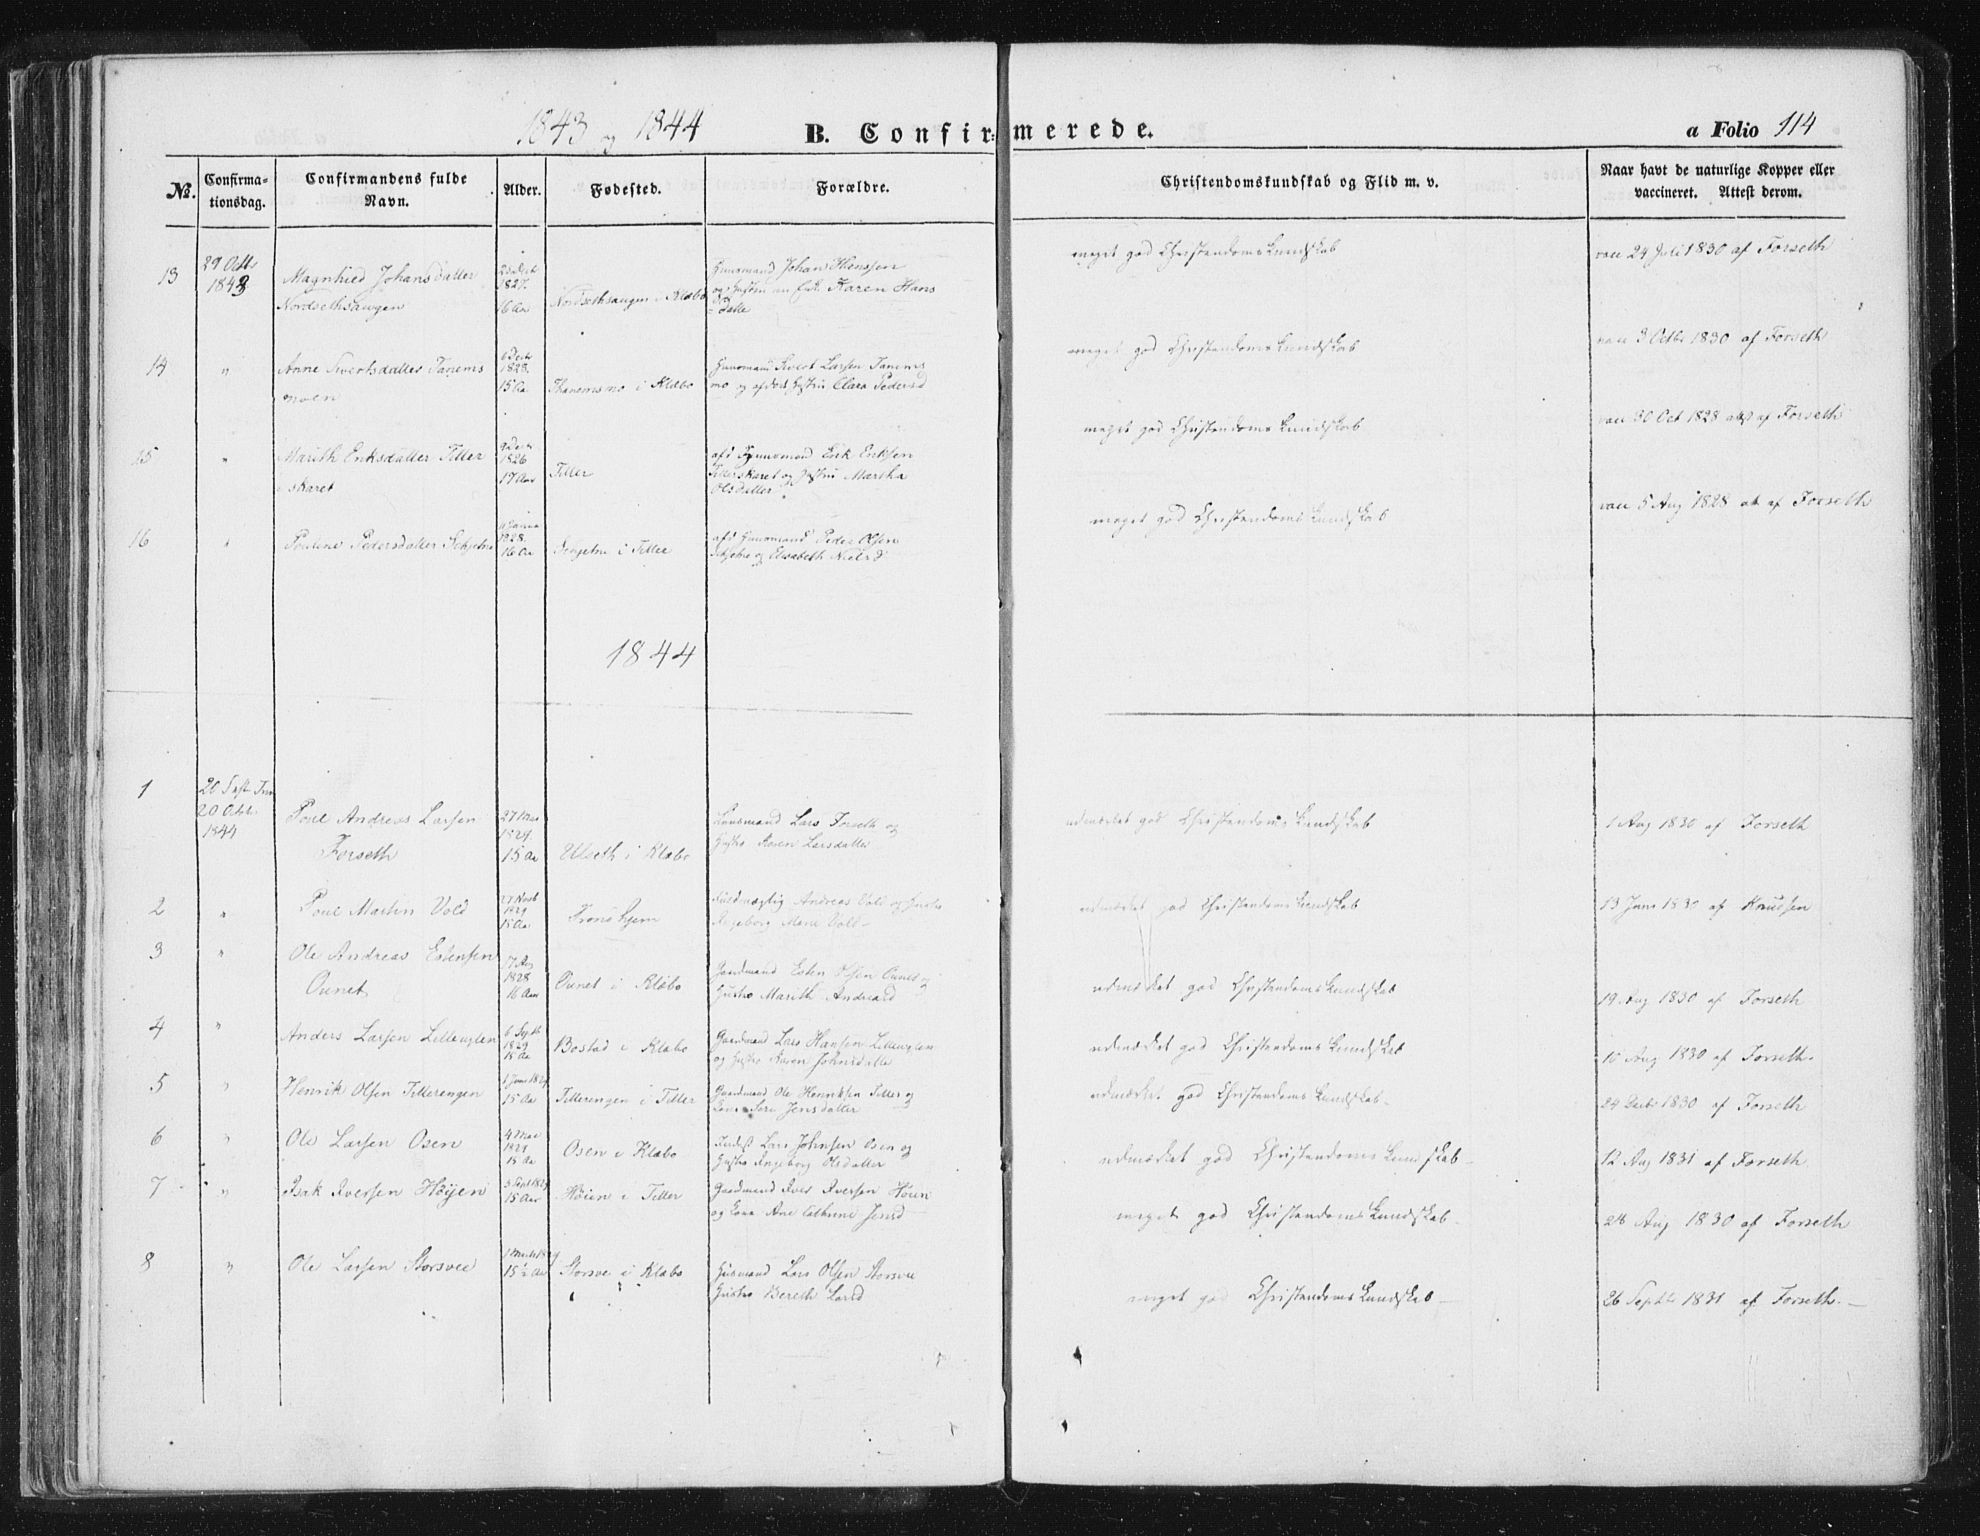 1843 og 1844
B. Confirmerede.
a Folio 114
No.
Confirmationsdag.
Confirmandens fulde Navn.
Alder.
Fødested.
Forældre.
Christendomskundskab og Flid m. v.
Naar havt de naturlige Kopper eller vaccineret. Attest derom.
13
29 Octb
1843
Magnhild Johansdatter
Nordsethsaugen
1827.
16 Aar
Nordsethsaugen i Klæbo
Huusmand Johan
Karen Hans
datte
meget god Christendomskundskab
vac 24 Juli 1830 af Forseth
14
"
Anne Sivertsdatter Tanems
moen
6 Decb
1828.
15 Aa
Thanemsmo i Klæbo
Huusmand Sivert Larsen Tanems
mo og Clara Pedersd
meget god Christendoms Kundskab
vac 3 Octbr 1830 af Forseth
15
"
Marith Eriksdatter Tiller
skaret
1826
17 Aar
Tiller
afd Huusmand Erik Eriksen
Tillerskaret og Martha
Olsdatter
meget god Christendoms Kundskab
vac 30 Oct 1828 af Forseth
16
"
Pauline Pedersdatter Schjetne
1828.
16 Aa
Schjetne i Tiller
afd Huusmand Peder Olsen
Schjetne og Elisabeth Nielsd
meget god Christendoms Kundskab
vac 5 Aug 1828 att af Forseth
1844
1
20 Octb
1844
Poul Andreas Larsen
Forseth
27 Mai
1829
15 Aa
Ulseth i Klæbo
Lars Forseth og
Hustro Karen Larsdatter
udmærket god Christendoms Kundskab
1 Aug 1830 af Forseth
2
"
Poul Martin Vold
27 Novb
1829
15 Aa
Trondhjem
Andreas Vold og Hustro
Ingeborg Marie Voll
udmærket god Christendoms Kundskab
13 Juni 1830 af Knudsen
3
"
Ole Andreas Estensen
Ounet
17
1828
16 Aar
Ounet i Klæbo
Gaardmand Esten Olsen Ounet og
Hustro Marith Andreasd
udmærket god Christendoms Kundskab
19 Aug 1830 af Forseth
4
"
Anders Larsen Lilleuglen
6 Septb
1829
15 Aa
Bostad i Klæbo
Gaardmand Lars Hansen Lilleuglen
og Hustro Karen Johnsdatte
udmærket god Christendoms Kundskab
10 Aug 1830 af Forseth.
5
"
Henrik Olsen Tillerengen
15 Aa
Tillerengen i Tiller
Gaardmand Ole Henriksen Tiller og
Kone Jensdatter
udmærket god Christendoms Kundskab
24 Decbr 1830 af Forseth
6
"
Ole Larsen Osen
4 Mai
1829
15 Aa
Osen i Klæbo
Lars Johnsen Osen og
Hustro Ingeborg Olsdatter
udmærket god Christendoms Kundskab
12 Aug 1831 af Forseth
7
"
Isak Iversen Høijen
3 Sept 1829
15 Aar
Høien i Tiller
Gaardmand Iver Iversen Høien
og Kone Ane Cathrine Jensd
meget god Christendoms Kundskab
28 Aug 1830 af Forseth
8
"
Ole Larsen Storsvee
15½ Aa
Storsve i Klæbo
Husmand Lars Olsen Storsvee
Hustro Bereth Larsd
meget god Christendoms Kundskab
26 Septbr 1831 af Forseth.